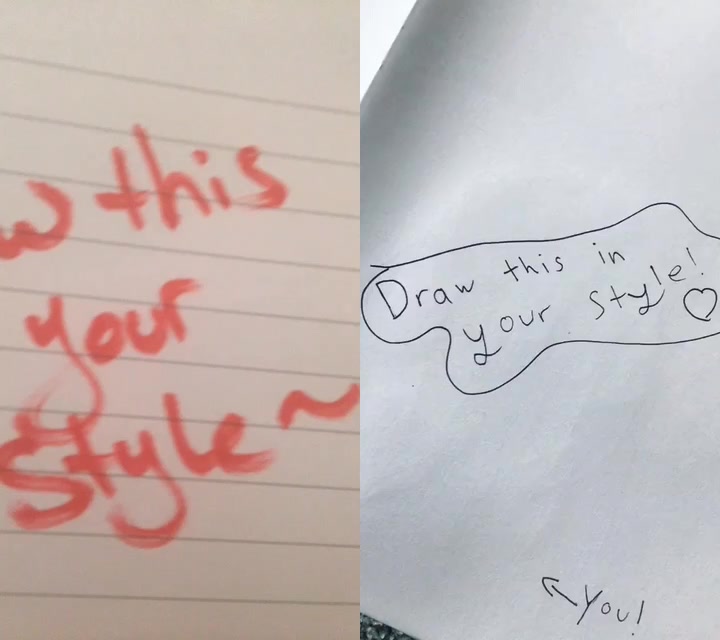 w this
your
style~
Draw this in
your style! ♡
↖ you!